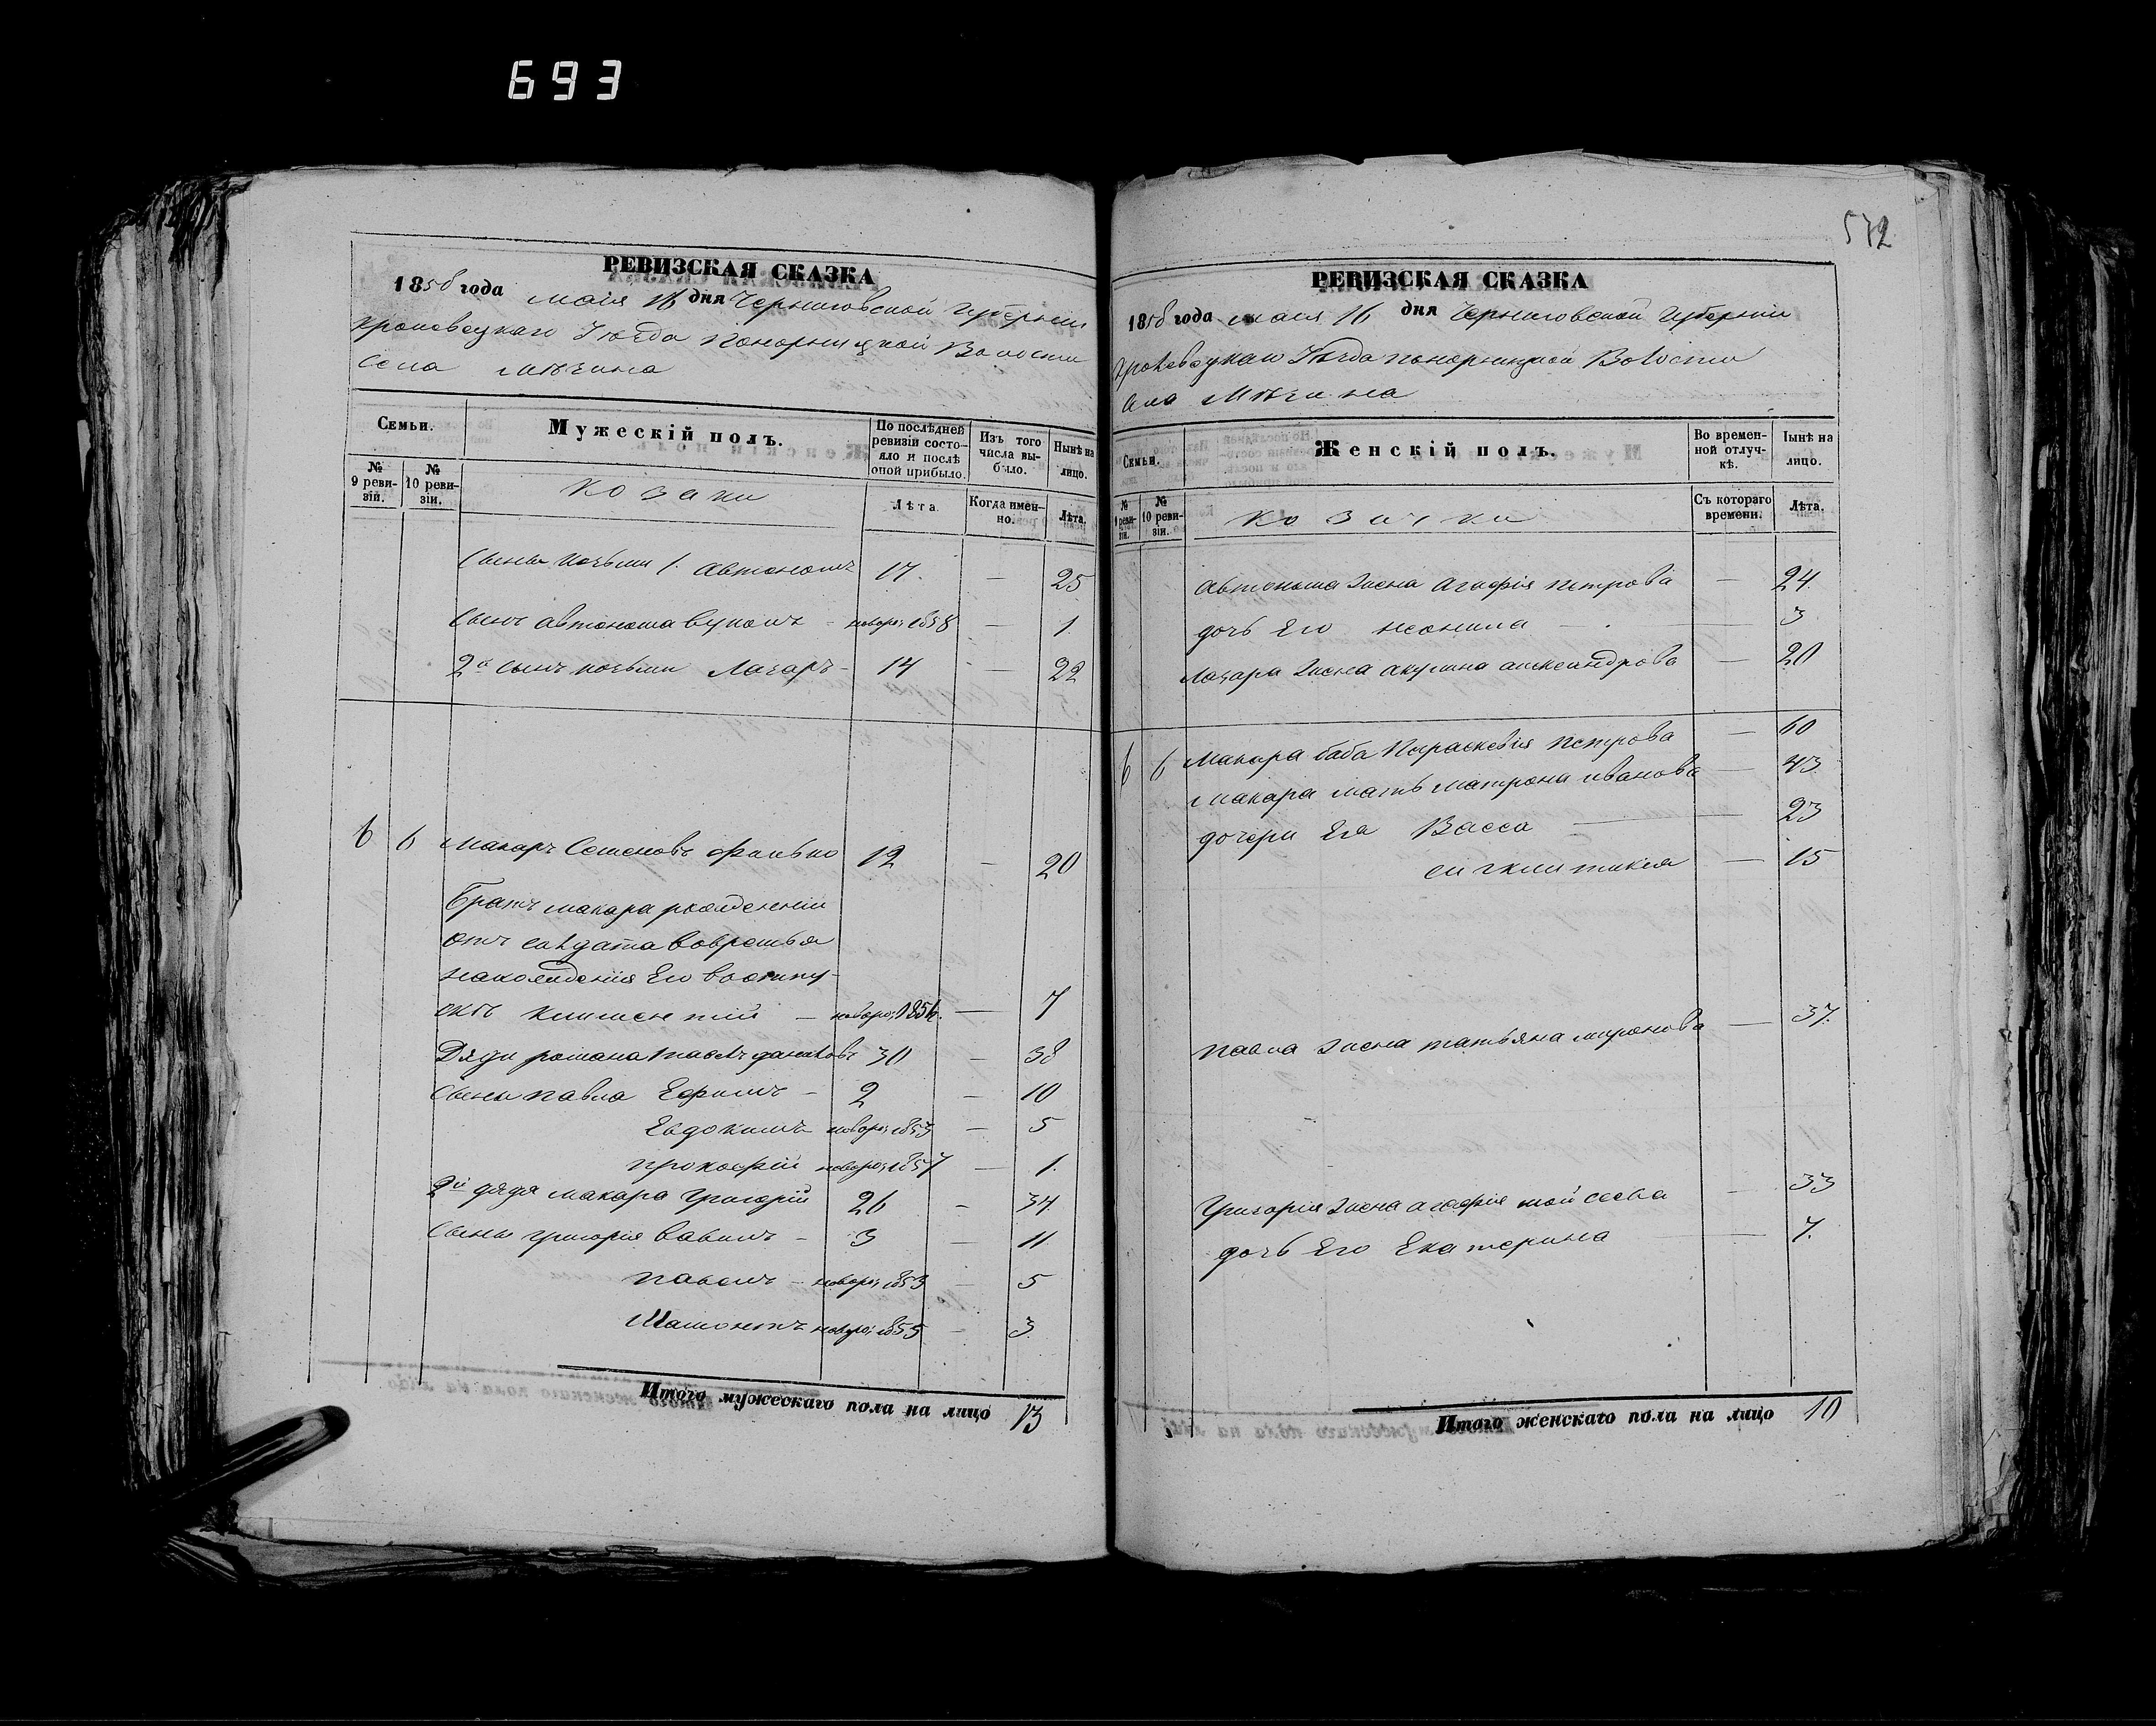 693
572
РЕВИЗСКАЯ СКАЗКА
1858 года маія 16 дня Черниговской Губерніи
Кролевецкаго Уѣзда Понорницкой Волости
Села Мѣзина
Семьи.
Мужескій полъ.
По послѣдней ревизіи состояло и послѣ оной прибыло.
Изъ того числа выбыло.
Нынѣ на лицо.
№ 9 ревизіи.
№ 10 ревизіи.
козаки
Лѣта.
Когда именно.
Лѣта.
Сыны козьми 1. Автономъ 17. — 25
Сынъ автонома вуколъ - новоро: 1858 — 1.
2й сынъ козьми Лазаръ - 14 — 22
6 6 Макаръ Семеновъ 12 — 20
Братъ макара рожденній
отъ солдата вовремья
нахожденія Его воотпу-
скѣ климентій — новоро: — 7
Дяди романа Павелъ даниловъ 30 — 38
Сыны павла Ефимъ - 2 — 10
Евдокимъ новоро: 1853 — 5
прокофій новоро: 1857 — 1.
2й дядя макара григорій 26 - 34
Сыны григорія вавилъ - 3 — 11
павелъ - новоро: 1853 — 5
Мамонтъ новоро: 1855 — 3
Итого мужескаго пола на лицо 13
РЕВИЗСКАЯ СКАЗКА
1858 года маія 16 дня Черниговской Губерніи
Кролевецкаго Уѣзда понорницкой Волости
Села Мѣзина
Семьи.
Женскій полъ.
Во временной отлучкѣ.
Нынѣ на лицо.
№ 9 ревизіи.
№ 10 ревизіи.
козачки
Съ котораго времени.
Лѣта.
Автонома жена Агафія петрова — 24
дочь Его неонила — 3
Лазара жена акулина александрова — 20
6 6 Макара баба Параскевія петрова — 60
Макара мать матрона иванова — 43
дочери Ея Васса — 23
сигклитикія — 15
павла жена татьяна миронова — 37.
Григорія жена агафія мойсеева — 33
дочь Его Екатерина — 7.
Итого женскаго пола на лицо 10